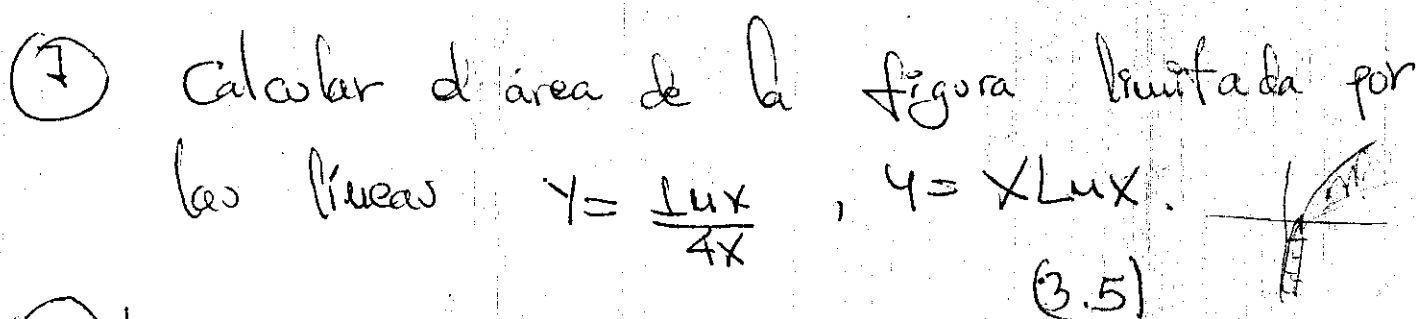 ① Calcular el área de la figura limitada por
las líneas y = Lnx / 4x , y = xLnx.
(3.5)